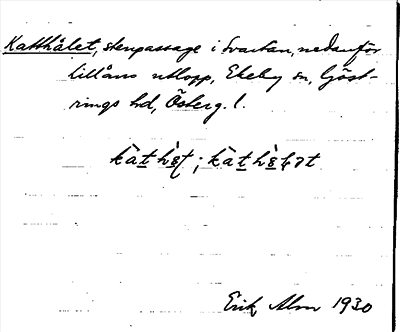 Katthålet, stenpassage i Svartån, nedanför
Lillåns utlopp, Ekeby sn, Göst-
rings hd, Österg. l.
Erik Alm 1930